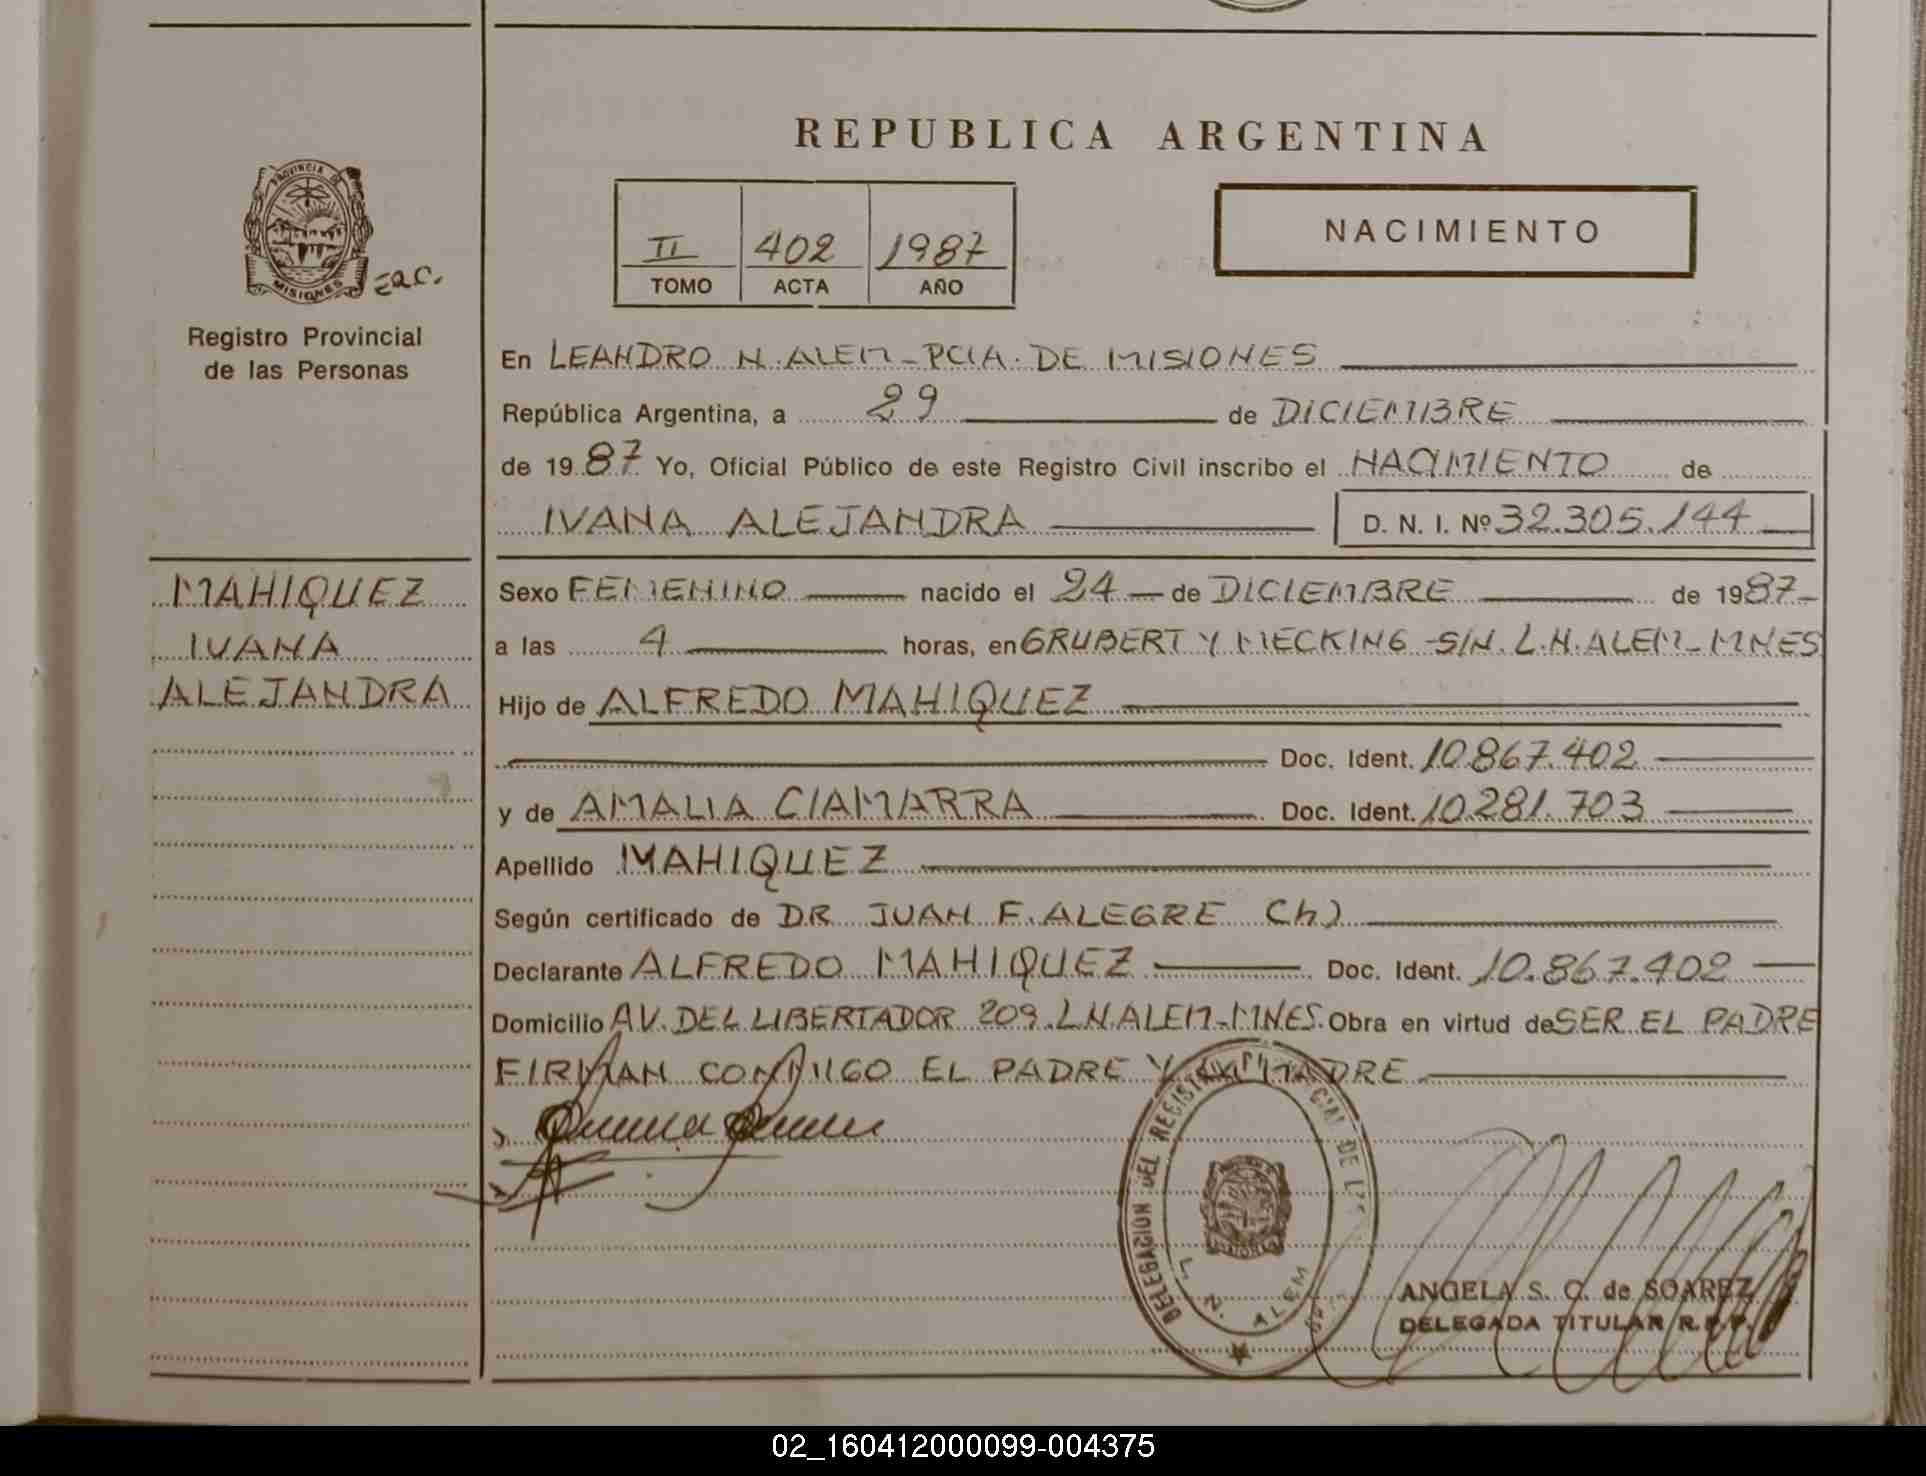 REPUBLICA ARGENTINA
PROVINCIA DE
MISIONES
Registro Provincial
de las Personas
II 402 1987
TOMO ACTA AÑO
NACIMIENTO
En LEANDRO N. ALEM - PCIA. DE MISIONES
República Argentina, a 29 de DICIEMBRE
de 1987 Yo, Oficial Público de este Registro Civil inscribo el NACIMIENTO de
IVANA ALEJANDRA D. N. I. Nº 32.305.144
MAHIQUEZ
IVANA
ALEJANDRA
Sexo FEMENINO nacido el 24 de DICIEMBRE de 1987
a las 4 horas, en GRUBERT Y MECKING S/N. L.N. ALEM - MNES
Hijo de ALFREDO MAHIQUEZ
Doc. Ident. 10.867.402
y de AMALIA CIAMARRA Doc. Ident. 10.281.703
Apellido MAHIQUEZ
Según certificado de DR JUAN F. ALEGRE (h)
Declarante ALFREDO MAHIQUEZ Doc. Ident. 10.867.402
Domicilio AV. DEL LIBERTADOR 209. L.N. ALEM - MNES. Obra en virtud de SER EL PADRE
FIRMAN CONMIGO EL PADRE Y LA MADRE
DELEGACION DEL REGISTRO
L. N. ALEM
ANGELA S. C. de SOAREZ
DELEGADA TITULAR R.P.P.
02_160412000099-004375